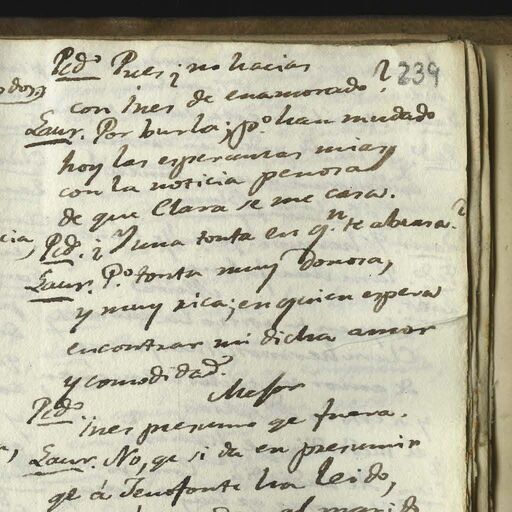 239
Ped.o Pues ¿no hacias
con Ines de enamorado?
Laur. Por burla; p.o han mudado
hoy las esperanzas mias
con la noticia penosa
de que Clara se me casa.
Ped. ¿Y una tonta es q.n te abrasa?
Laur. P.o tonta muy donosa,
y muy rica; en quien espera
encontrar mi dicha amor
y comodidad.
Ped.o Mejor
Ines presumo qe fuera.
Laur. No, qe si da en presumir
qe á Jenofonte ha leido,
al marido